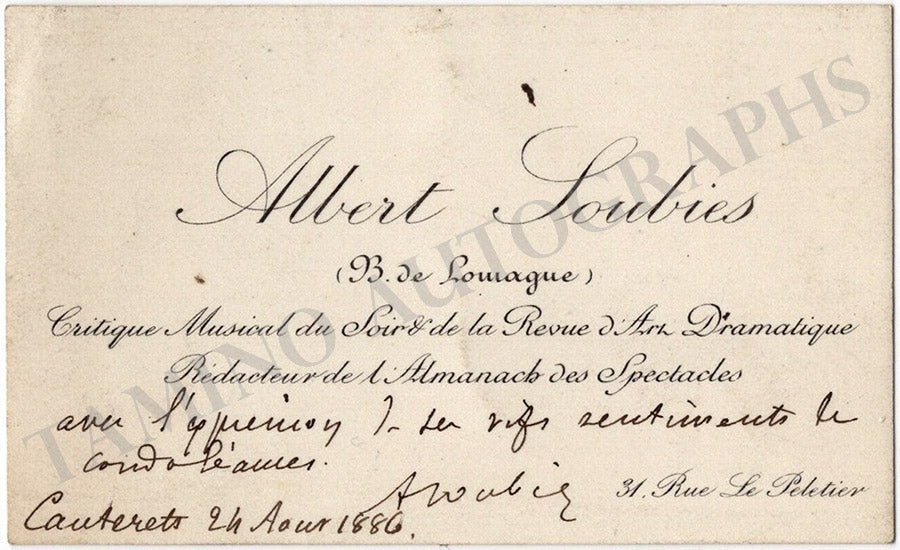 Albert Soubies
(B. de Lomague)
Critique Musical du Soir & de la Revue d'Art Dramatique
Rédacteur de l'Almanach des Spectacles
avec l'expression de ses vifs sentiments de
condoléances.
ASoubies
31. Rue Le Peletier
Cauterets 24 Aout 1886.
TAMINO AUTOGRAPHS